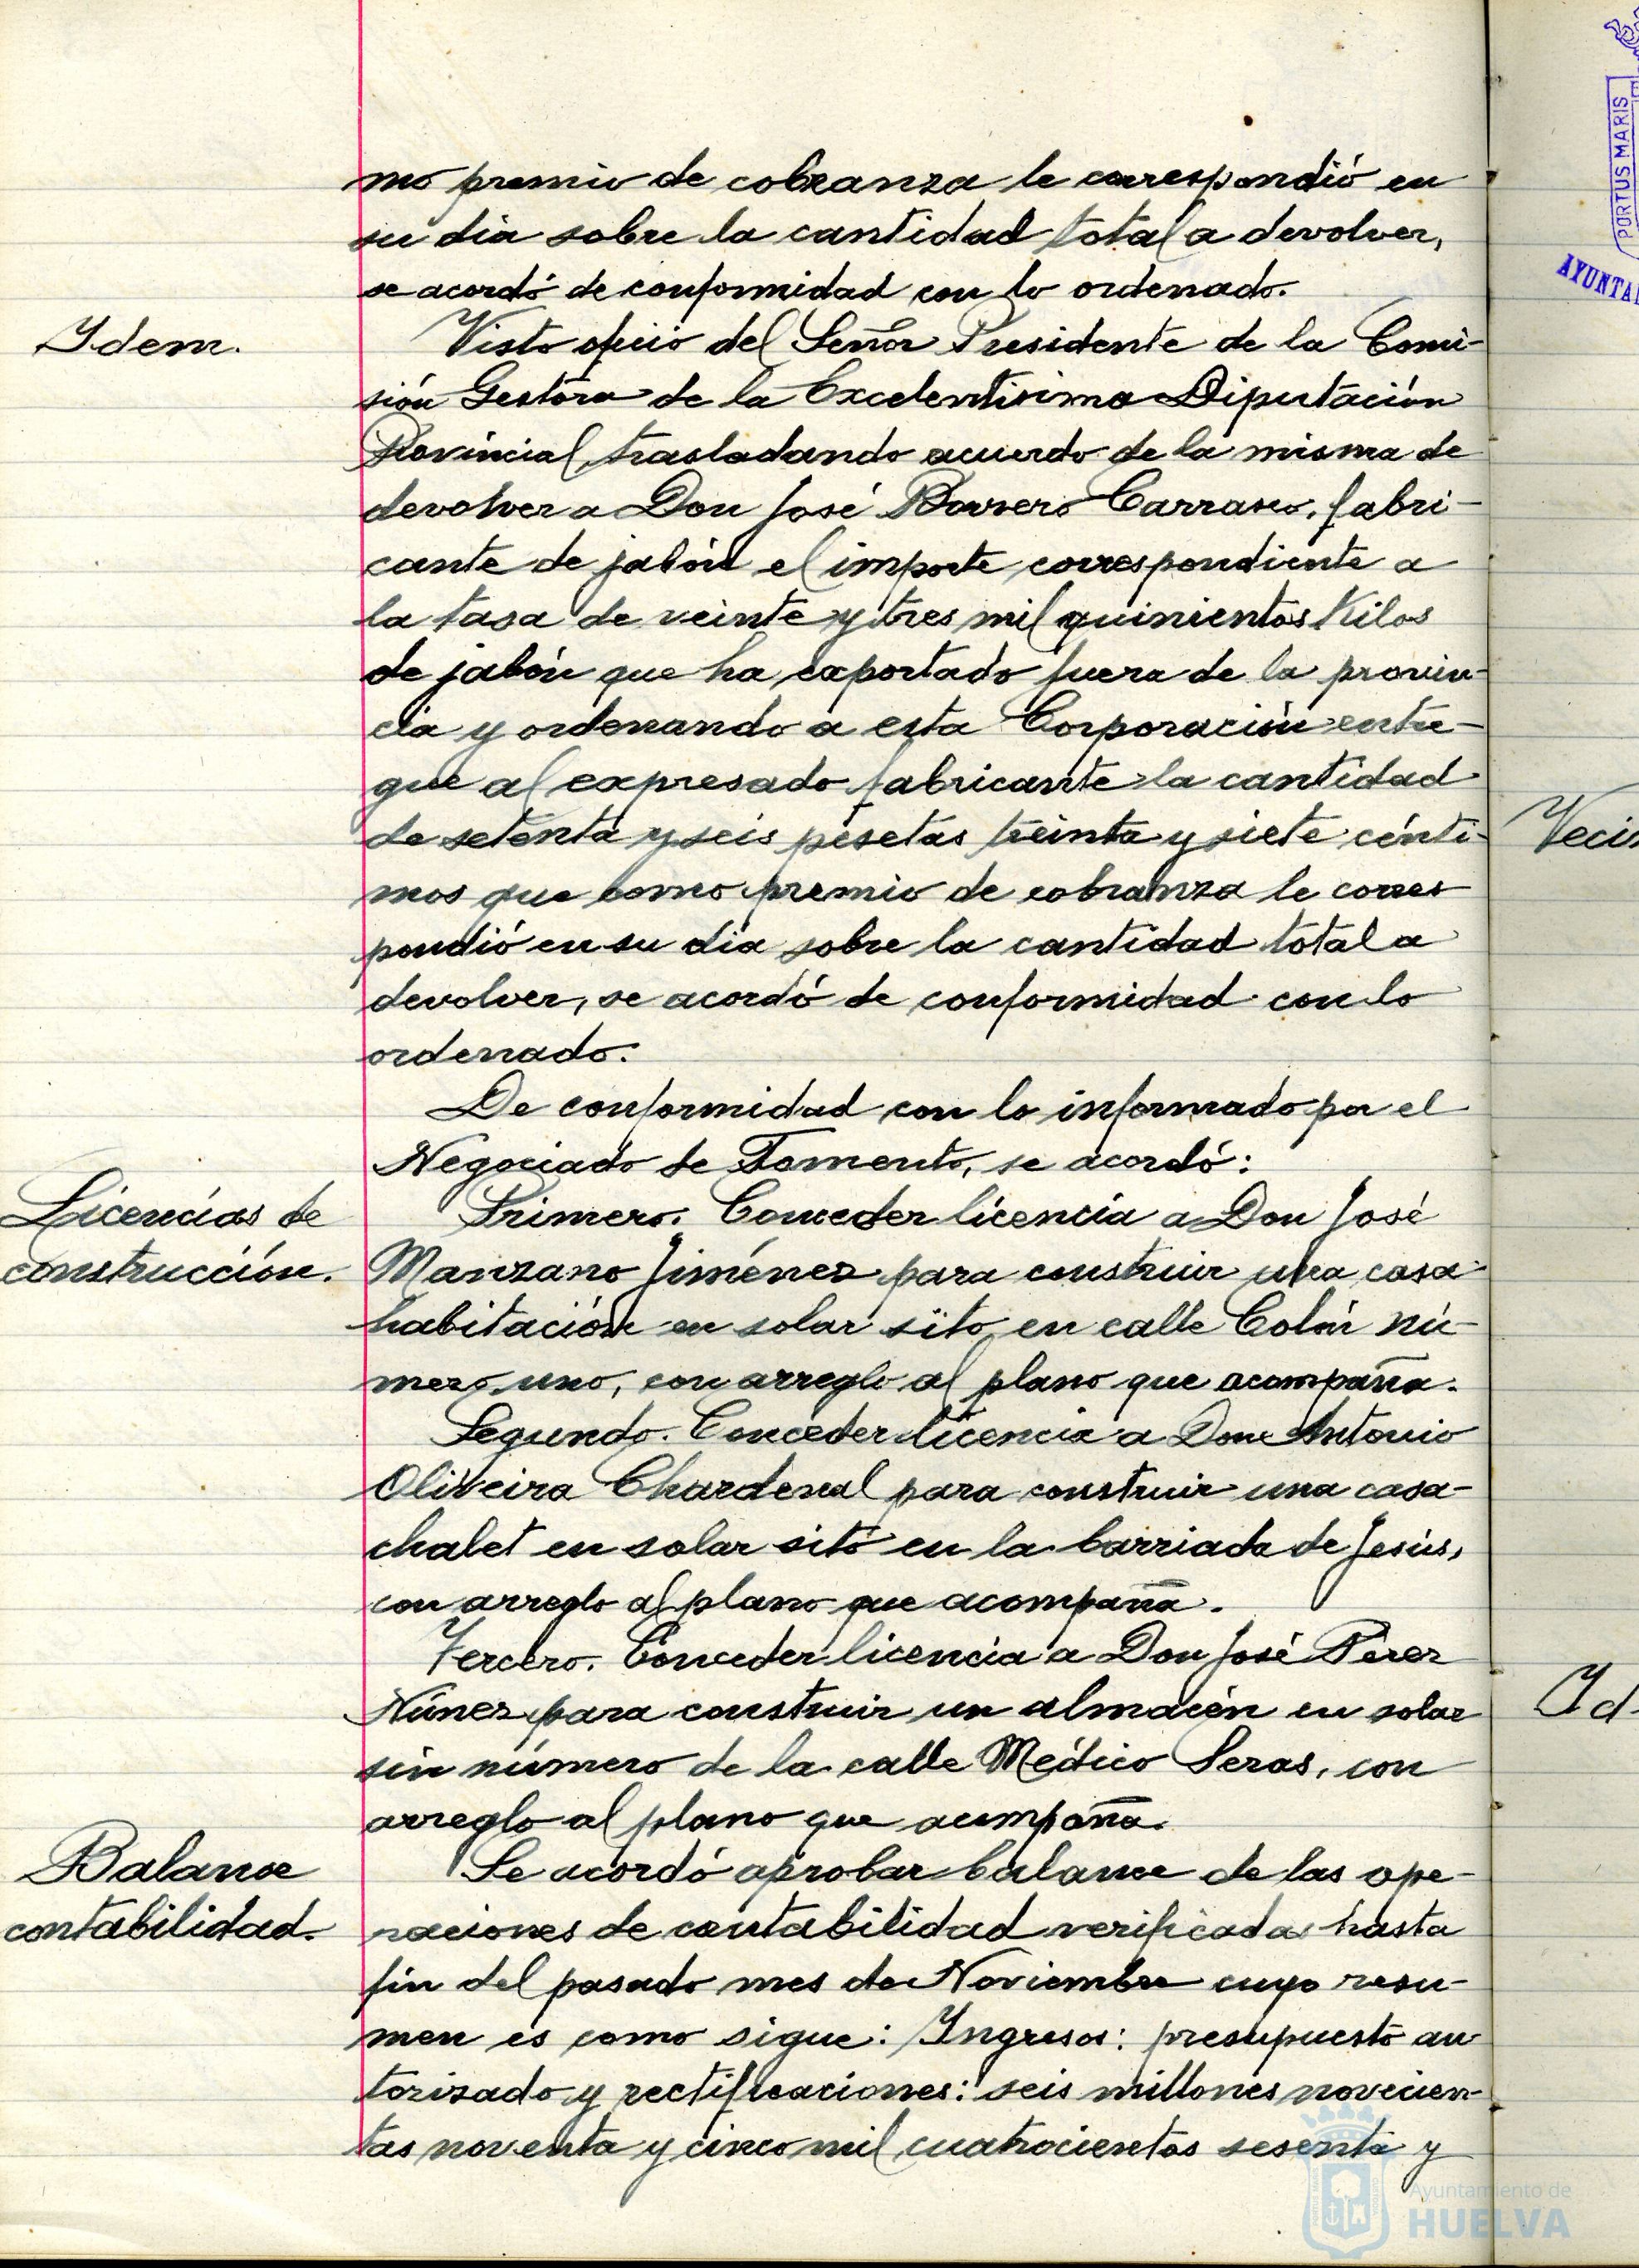 mo premio de cobranza le correspondió en
su dia sobre la cantidad total a devolver,
se acordó de conformidad con lo ordenado.
Idem.
Visto oficio del Señor Presidente de la Comi-
sión Gestora de la Excelentisima Diputación
Provincial, trasladando acuerdo de la misma de
devolver a Don José Borrero Carrasco, fabri-
cante de jabón el importe correspondiente a
la tasa de veinte y tres mil quinientos Kilos
de jabón que ha exportado fuera de la provin-
cia y ordenando a esta Corporación entre-
gue al expresado fabricante la cantidad
de setenta y seis pesetas treinta y siete cénti-
mos que como premio de cobranza le corres
pondió en su dia sobre la cantidad total a
devolver, se acordó de conformidad con lo
ordenado.
De conformidad con lo informado por el
Negociado de Fomento, se acordó:
Licencias de
construcción.
Primero. Conceder licencia a Don José
Manzano Jiménez para construir una casa
habitación en solar sito en calle Colón nú-
mero uno, con arreglo al plano que acompaña.
Segundo. Conceder licencia a Don Antonio
Oliveira Chardenal para construir una casa-
chalet en solar sito en la barriada de Jesús,
con arreglo al plano que acompaña.
Tercero. Conceder licencia a Don José Pérez
Núnez para construir un almacén en solar
sin número de la calle Médico Seras, con
arreglo al plano que acompaña.
Balance
contabilidad.
Se acordó aprobar balance de las ope-
raciones de contabilidad verificadas hasta
fin del pasado mes de Noviembre cuyo resu-
men es como sigue: Ingresos: presupuesto au
torizado y rectificaciones: seis millones novecien-
tas noventa y cinco mil cuatrocientas sesenta y
PORTUS MARIS
AYUNTA
Veci
Id
Ayuntamiento de
HUELVA